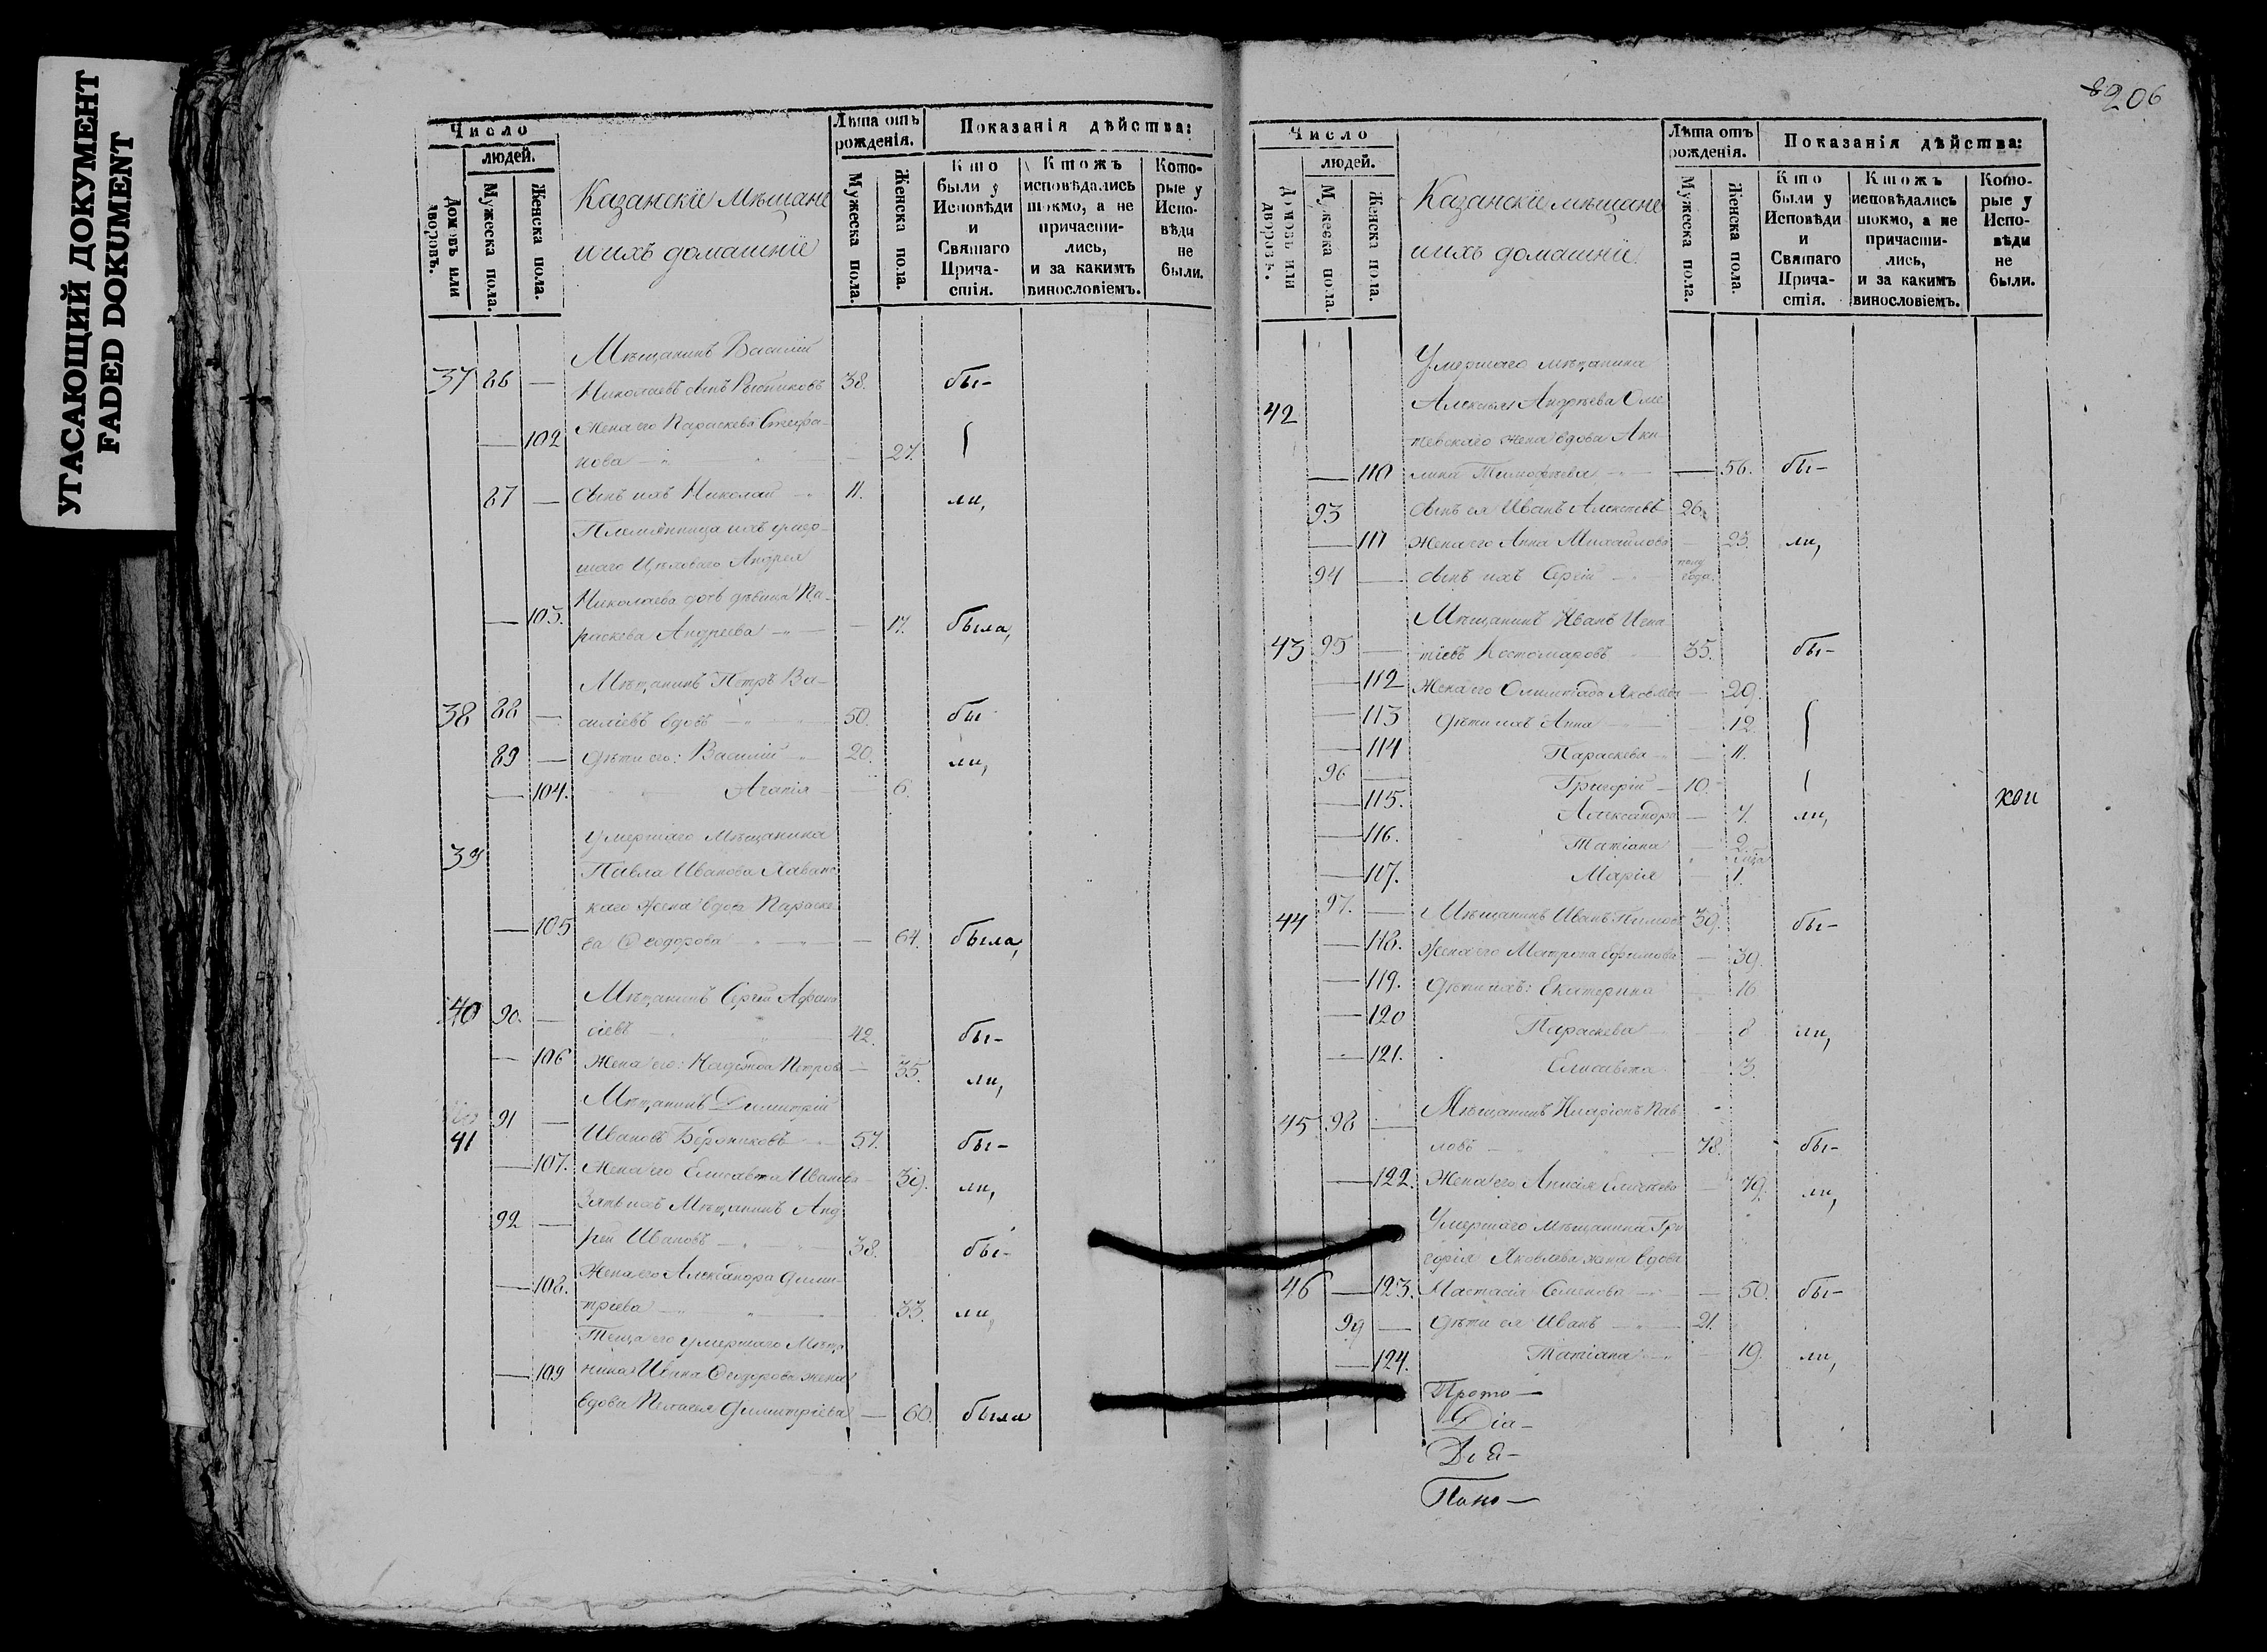 УГАСАЮЩИЙ ДОКУМЕНТ
FADED DOKUMENT
Число
людей.
Домовъ или дворовъ.
Мужеска пола.
Женска пола.
Казанскіе мѣщане
и ихъ домашніе
Лѣта отъ рожденія.
Мужеска пола.
Женска пола.
Показанія дѣйства:
Кто были у Исповѣди и Святаго Причастія.
Ктожъ исповѣдались токмо, а не причастились, и за какимъ винословіемъ.
Которые у Исповѣди не были.
Мѣщанинъ Василій
37 86 — Николаевъ сынъ 38. бы-
— 102 Жена его Параскева Стефа-
нова — 27.
87 — сынъ ихъ Николай 11. ли,
Племянница ихъ умер-
шаго Андрея
Николаева дочь дѣвица Па-
— 103. раскева Андреева — 17. была,
Мѣщанинъ Петръ Ва-
38 88 — силіевъ вдовъ 50. бы
89 — дѣти его: Василій 20. ли,
— 104. Агапія — 6.
умершаго Мѣщанина
39
Павла Иванова
жена вдова Параске-
— 105 ва Ѳеодорова — 64. была,
Мѣщанинъ Сергій Афана
40 90. — сіевъ 42. бы-
— 106 Жена его: Надежда Петров — 35. ли,
Мѣщанинъ Димитрій
41 91 — Ивановъ 57. бы-
— 107. Жена его Елисавета Иванова 39. ли,
Зять ихъ Мѣщанинъ Анд
92 — рей Ивановъ 38. бы-
— 108. Жена его Александра Дими-
тріева 33. ли,
Теща его умершаго Мѣща
— 109 нина Ивана Ѳеодорова жена
вдова Пелагея Димитріева — 60. была
206
Число
людей.
Домовъ или дворовъ.
Мужеска пола.
Женска пола.
Казанскіе мѣщане
и ихъ домашніе
Лѣта отъ рожденія.
Мужеска пола.
Женска пола.
Показанія дѣйства:
Кто были у Исповѣди и Святаго Причастія.
Ктожъ исповѣдались токмо, а не причастились, и за какимъ винословіемъ.
Которые у Исповѣди не были.
Умершаго мѣщанина
42 Андреева
жена вдова Аки-
— 110 лина Тимофеева — 56. бы-
93 сынъ ея Иванъ Алексѣевъ 26.
— 111 Жена его Анна Михайлова — 23. ли,
94 — сынъ ихъ Сергій полу года.
Мѣщанинъ Иванъ Игна
43 95 — тіевъ 35. бы-
— 112 Жена его Олимпіада Яковлева — 29.
— 113 дѣти ихъ Анна 12.
— 114 Параскева — 11.
96 — Григорій — 10.
— 115. Александра — 7. ли, кои
— 116. Татіана — 2
— 117. Марія — 1.
44 97. — Мѣщанинъ Иванъ 39. бы-
— 118. Жена его Матрона Ефимова — 39.
— 119. дѣти ихъ: Екатерина 16
— 120 Параскева 8 ли,
— 121. Елисавета 3.
45 98 — Мѣщанинъ Иларіонъ Пав-
ловъ — 78. бы-
— 122. Жена его Анисія 79. ли,
Умершаго Мѣщанина Гри
горія Яковлева жена вдова
46 — 123. Настасія Семенова — 50. бы-
99 — дѣти ея Иванъ 21.
— 124. Татіана 19. ли,
Прото —
Діа —
По —